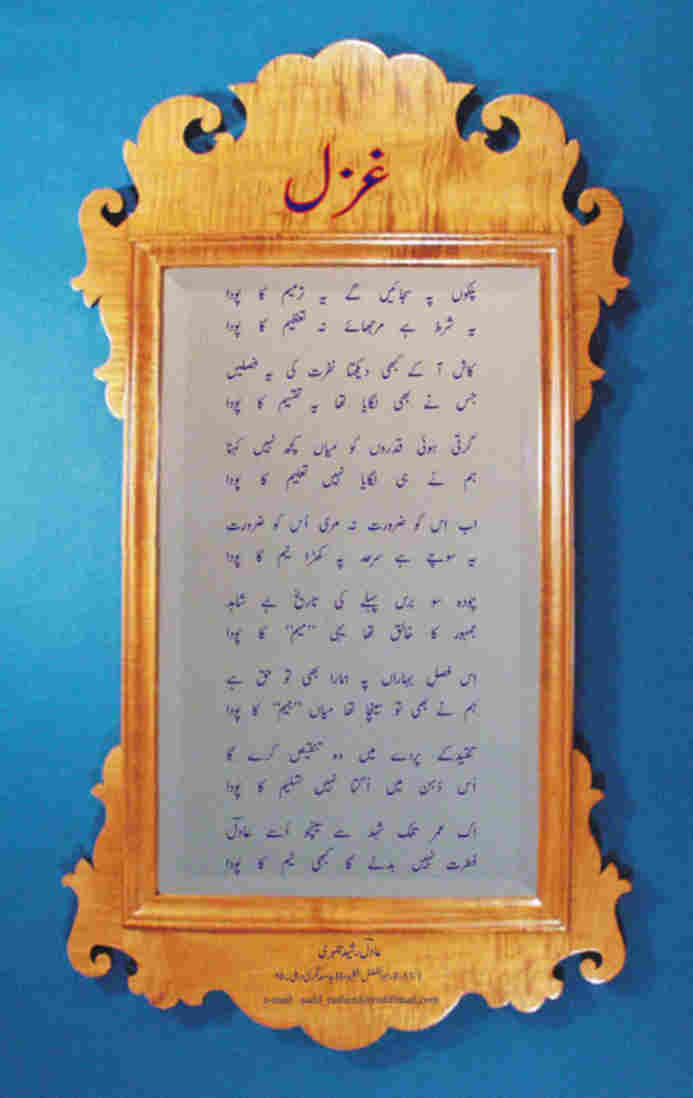 غزل
پلکوں پہ سجائیں گے یہ ترمیم کا پودا
یہ شرط ہے مرجھائے نہ تعظیم کا پودا
کاش آ کے کبھی دیکھتا نفرت کی یہ فصلیں
جس نے بھی لگایا تھا یہ تقسیم کا پودا
گرتی ہوئی قدروں کو میاں کچھ نہیں کہنا
ہم نے ہی لگایا نہیں تعلیم کا پودا
اب اس کو ضرورت نہ مری اُس کو ضرورت
یہ سوچے ہے سرحد پہ کھڑا نیم کا پودا
چودہ سو برس پہلے کی تاریخ ہے شاہد
جمہور کا خالق تھا یہی ”میم“ کا پودا
اس فصلِ بہاراں پہ ہمارا بھی تو حق ہے
ہم نے بھی تو سینچا تھا میاں ”جیم“ کا پودا
تنقید کے پردے میں وہ تنقیص کرے گا
اُس ذہن میں اُگتا نہیں تسلیم کا پودا
اک عمر تلک شہد سے سینچو اُسے عادلؔ
فطرت نہیں بدلے گا کبھی نیم کا پودا
عادلؔ رشید
e-mail: